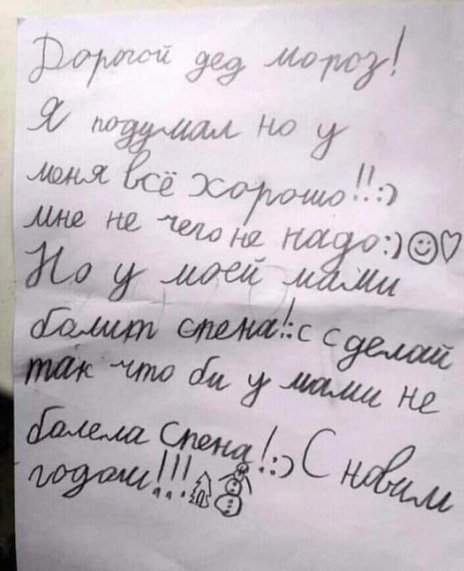 Дорогой дед мороз!
Я подумал но у
меня всё хорошо!!:)
мне не чего не надо:)☺♡
Но у моей мами
болит спена!:с сделай
так что би у мами не
болела спена!:) С новим
годом!!!